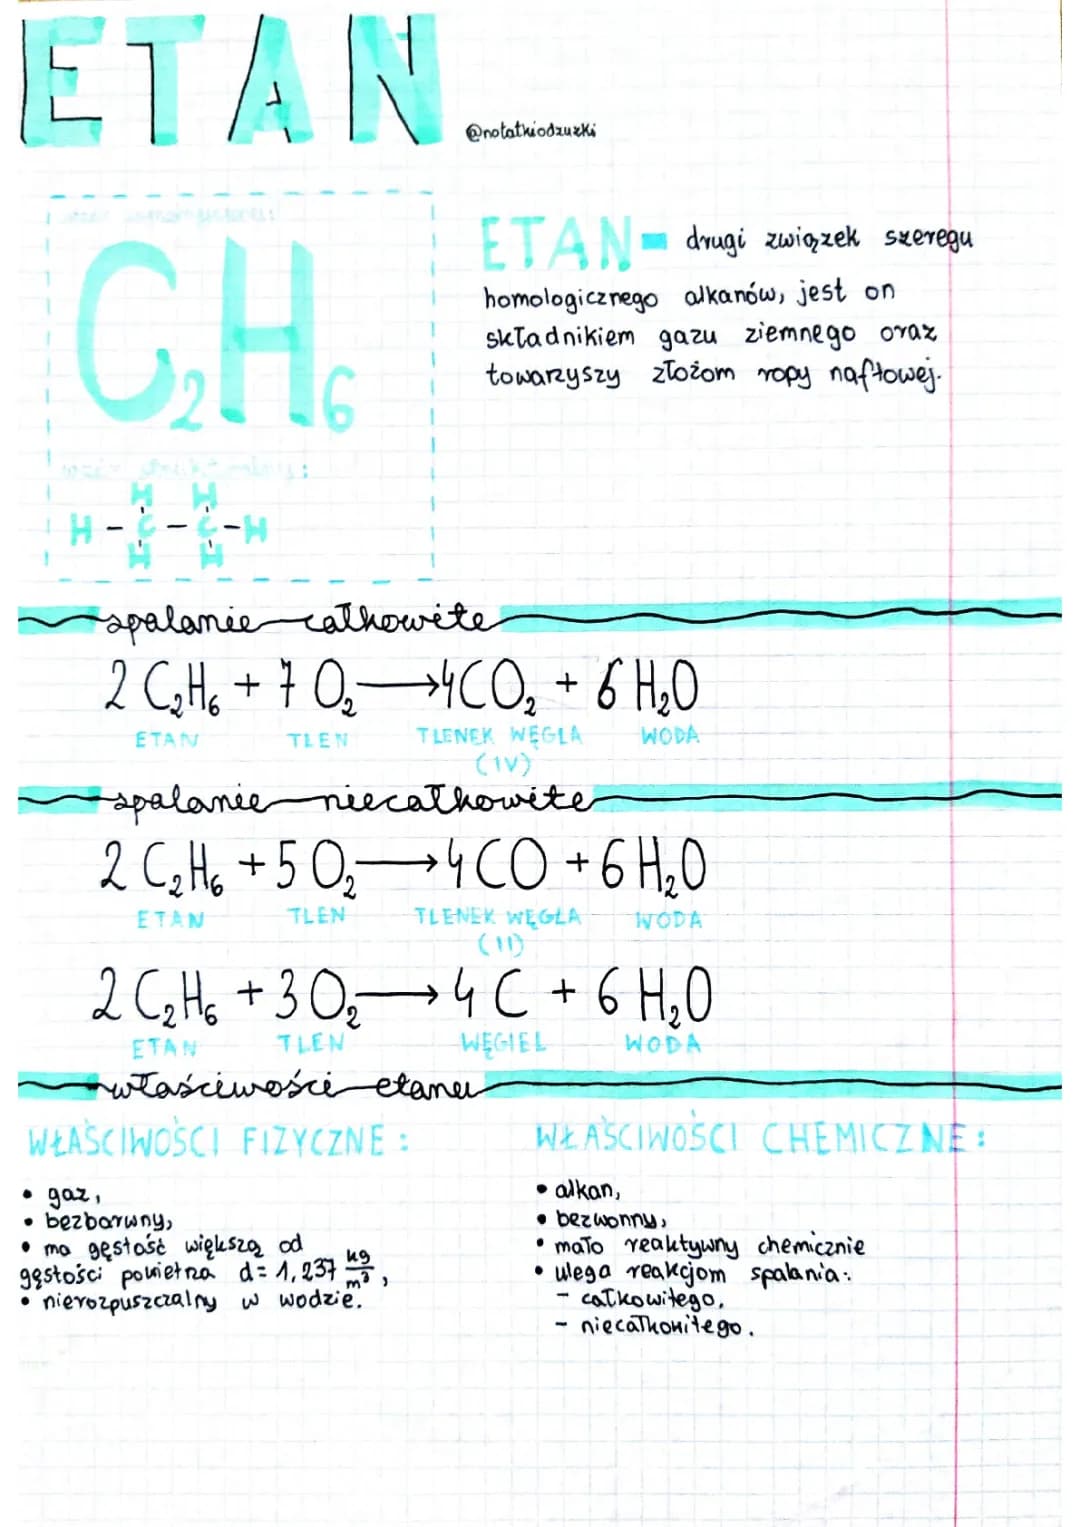 ETAN
@notatkiodzuzki
C₂H₆
ETAN - drugi związek szeregu
homologicznego alkanów, jest on
składnikiem gazu ziemnego oraz
towarzyszy złożom ropy naftowej.
H H
H - C - C - H
H H
spalanie całkowite
2 C₂H₆ + 7 O₂ → 4 CO₂ + 6 H₂O
ETAN TLEN TLENEK WĘGLA WODA
(IV)
spalanie niecałkowite
2 C₂H₆ + 5 O₂ → 4 CO + 6 H₂O
ETAN TLEN TLENEK WĘGLA WODA
(II)
2 C₂H₆ + 3 O₂ → 4 C + 6 H₂O
ETAN TLEN WĘGIEL WODA
właściwości etanu
WŁAŚCIWOŚCI FIZYCZNE:
• gaz,
• bezbarwny,
• ma gęstość większą od
gęstości powietrza d = 1,237 kg/m³,
• nierozpuszczalny w wodzie.
WŁAŚCIWOŚCI CHEMICZNE:
• alkan,
• bezwonny,
• mało reaktywny chemicznie
• ulega reakcjom spalania:
- całkowitego,
- niecałkowitego.